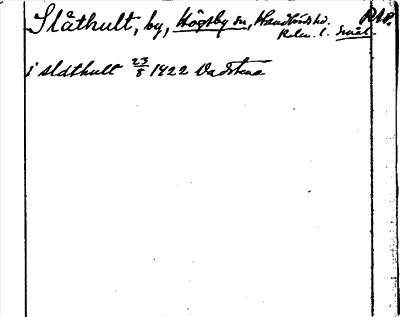 Slåthult, by, Högsby sn, Handbörds hd. RAP.
Kalm. l. Smål.
i sldthult 23/8 1422 Vadstena